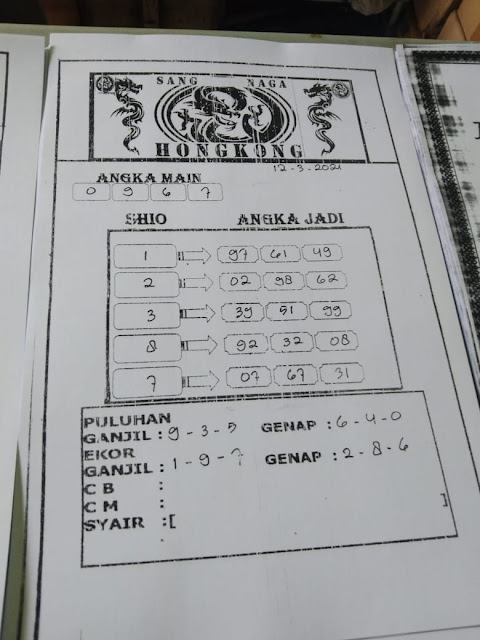 SANG NAGA
HONGKONG
12-3-2021
ANGKA MAIN
0 9 6 7
SHIO ANGKA JADI
1 97 61 49
2 02 98 62
3 39 51 99
8 92 32 08
7 07 67 31
PULUHAN
GANJIL : 9-3-5 GENAP : 6-4-0
EKOR
GANJIL : 1-9-7 GENAP : 2-8-6
C B :
C M :
SYAIR :[ ]